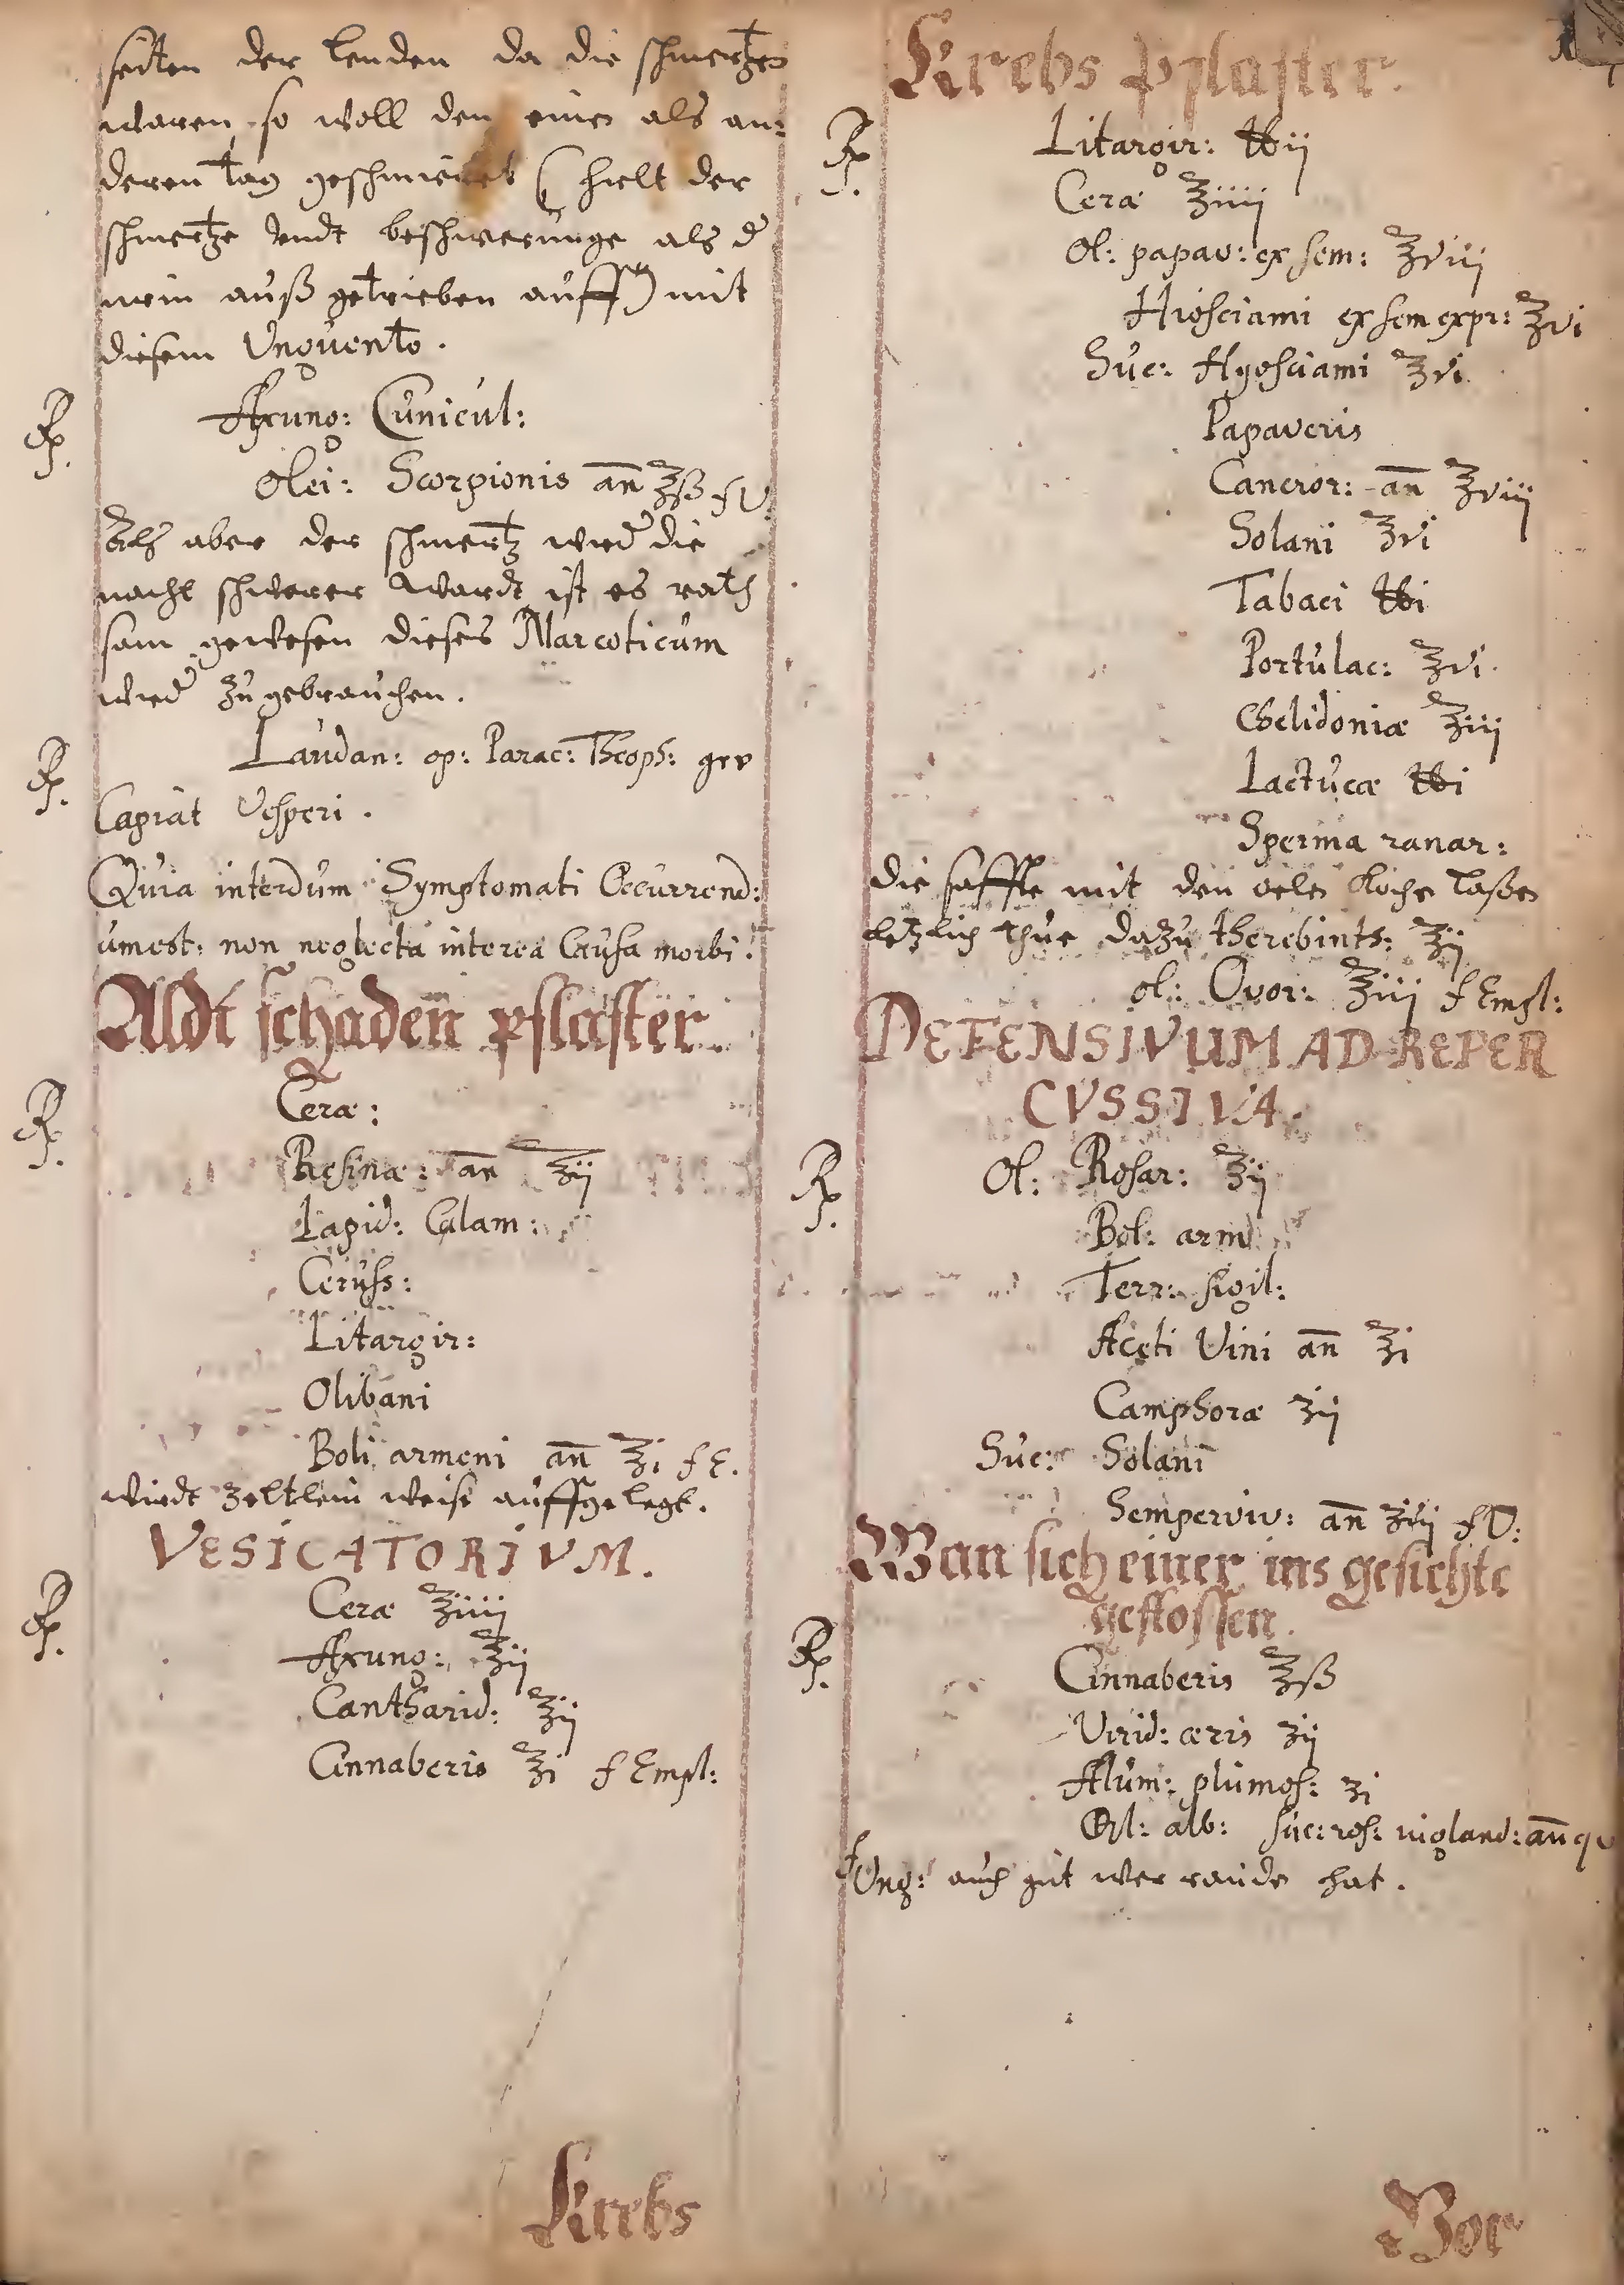 seiten der lenden da die schmertzen
waren, so woll den einen als an:
deren tag geschmieret (hielt der
schmertze vndt beschwerunge als d
wein auß getrieben auff) mit
diesem Vnguento.
℞. Axung: Cunicul:
Olei: Scorpionis an ℥ß f V:
Alß aber der schmertz wied die
nacht schwerer wardt, ist es rath
sam gewesen dieses Narcoticum
wied zu gebrauchen.
℞. Laudan: op: Parac: Theoph: gr v
Capiat Vesperi.
Quia interdum Symptomati Occurrend:
umest: non neglecta interea Causa morbi.
Aldt schaden pflaster.
℞. Ceræ:
Resinæ: an ℥ij
Lapid: Calam:
Ceruss:
Litargir:
Olibani
Boli armeni an ℥i f E.
wirdt zeltlein weise auffgelegt.
VESICATORIVM.
℞. Ceræ ℥iiij
Axung: ℥ij
Cantharid: ℥ij
Cinnaberis ℥i f Empl:
Krebs
Krebs pflaster.
℞. Litargir: ℔ij
Ceræ ℥iiij
Ol: papav: ex sem: ℥viij
Hiosciami ex sem expr: ℥vi
Suc: Hyosciami ℥vi
Papaveris
Cancror: an ℥viij
Solani ℥vi
Tabaci ℔i
Portulac: ℥vi
Chelidoniæ ℥iij
Lactucæ ℔i
Sperma ranar:
die saffte mit den oelen kochen laßen
letzlich thue dazu therebinth: ℥ij
ol: Ovor: ℥iij f Empl:
DEFENSIVUM AD REPER
CVSSIVA.
℞. Ol: Rosar: ℥ij
Bol: arm
Terr: sigil:
Aceti Vini an ℥i
Camphoræ ʒij
Suc: Solani
Semperviv: an ʒvij f V:
Wan sich einer ins gesichte
gestossen.
℞. Cinnaberis ℥ß
Virid: æris ʒij
Alum: plumos: ʒi
alb: suc: ros: nigland: an qv
f Ung: auch gut wer raude hat.
Vor